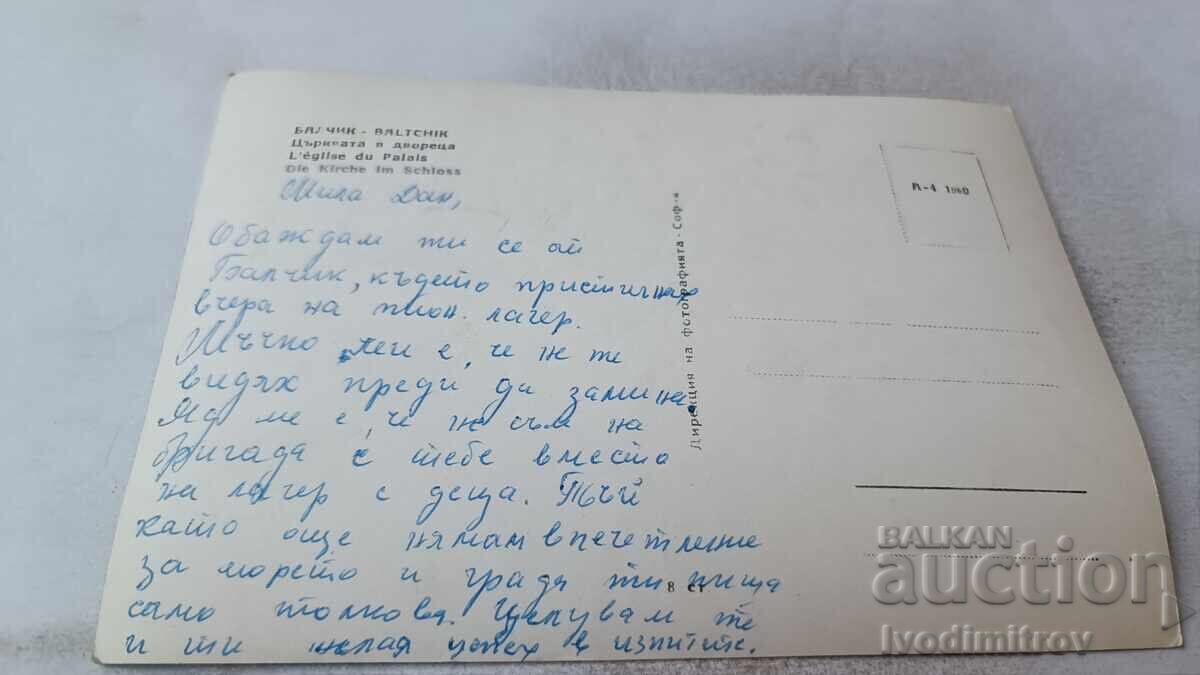 БАЛЧИК - BALTCHIK
Църквата в двореца
L'église du Palais
Die Kirche im Schloss
Мила Дан,
Обаждам ти се от
Балчик, където пристигнах
вчера на пион. лагер.
Мъчно ми е, че не те
видях преди да замина.
Яд ме е, че не съм на
бригада с тебе вместо
на лагер с деца. Тъй
като още нямам впечетление
за морето и града ти пиша
само толкова. Целувам те
и ти желая успех в изпитите.
Дирекция на фотографията - София
Я-4 1960
8 ст
BALKAN
auction
Ivodimitrov